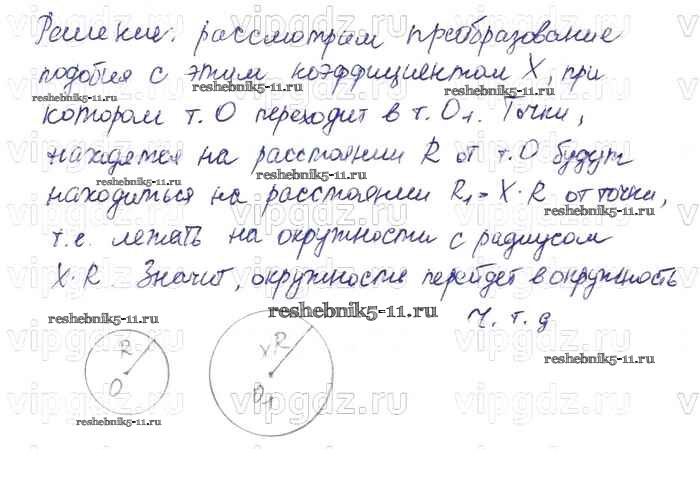 Решение: рассмотрим преобразование
подобия с этим коэффициентом X, при
котором т. O переходит в т. O₁. Точки,
находятся на расстоянии R от т. O будут
находиться на расстоянии R₁ = X · R от точки,
т.е. лежать на окружности с радиусом
X · R. Значит, окружность перейдет в окружность
ч. т. д
R
O
X·R
O₁
reshebnik5-11.ru
reshebnik5-11.ru
reshebnik5-11.ru
reshebnik5-11.ru
reshebnik5-11.ru
reshebnik5-11.ru
reshebnik5-11.ru
reshebnik5-11.ru
reshebnik5-11.ru
vipgdz.ru